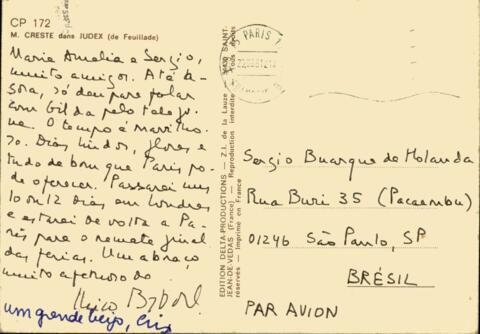 CP 172
M. CRESTE dans JUDEX (de Feuillade)
Maria Amelia e Sergio,
muito amigos. Até a-
gora, só deu para falar
com Gilda pelo telefo-
ne. O tempo é maravilho-
so. Dias lindos, flores e
tudo de bom que Paris po-
de oferecer. Passarei uns
10 ou 12 dias em Londres
e estarei de volta a Pa-
ris para o remate final
das férias. Um abraço
muito afetuoso do
um grande beijo, Cris
EDITION DELTA-PRODUCTIONS - Z.I. de la Lauze - 34430 SAINT-
JEAN-DE-VEDAS (France) - Reproduction interdite - Tous droits
réservés - Imprimé en France
PARIS
Sergio Buarque de Holanda
Rua Buri 35 (Pacaembu)
01246 São Paulo, SP
BRÉSIL
PAR AVION